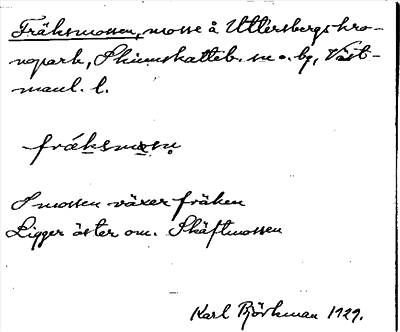 Fräksmossen, mosse å Uttersbergs kro-
nopark, Skinnskatteb. sn o. bg, Väst-
manl. l.
fräksmosn
I mossen växer fräken
Ligger öster om Skäftmossen
Karl Björkman 1929.